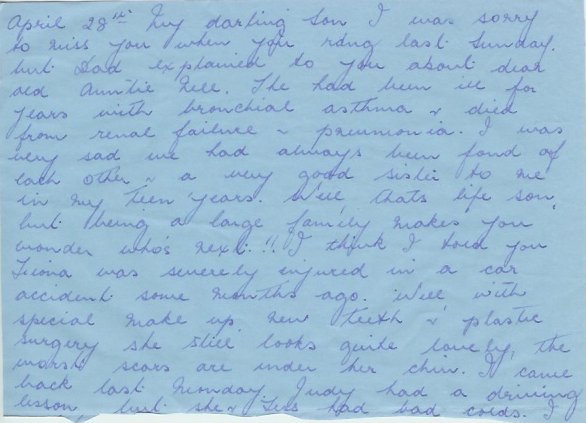 April 28th My darling Son I was sorry
to miss you when you rang last Sunday.
but Dad explained to you about dear
old Auntie Nell. She had been ill for
years with bronchial asthma & died
from renal failure & pneumonia. I was
very sad we had always been fond of
each other & a very good sister to me
in my teen years. Well, thats life son,
but being a large family makes you
wonder who's next!! I think I told you
Fiona was severely injured in a car
accident some months ago. Well with
special make up new teeth & plastic
surgery she still looks quite lovely, the
worst scars are under her chin. I came
back last Monday Judy had a driving
lesson but she & had bad colds. I